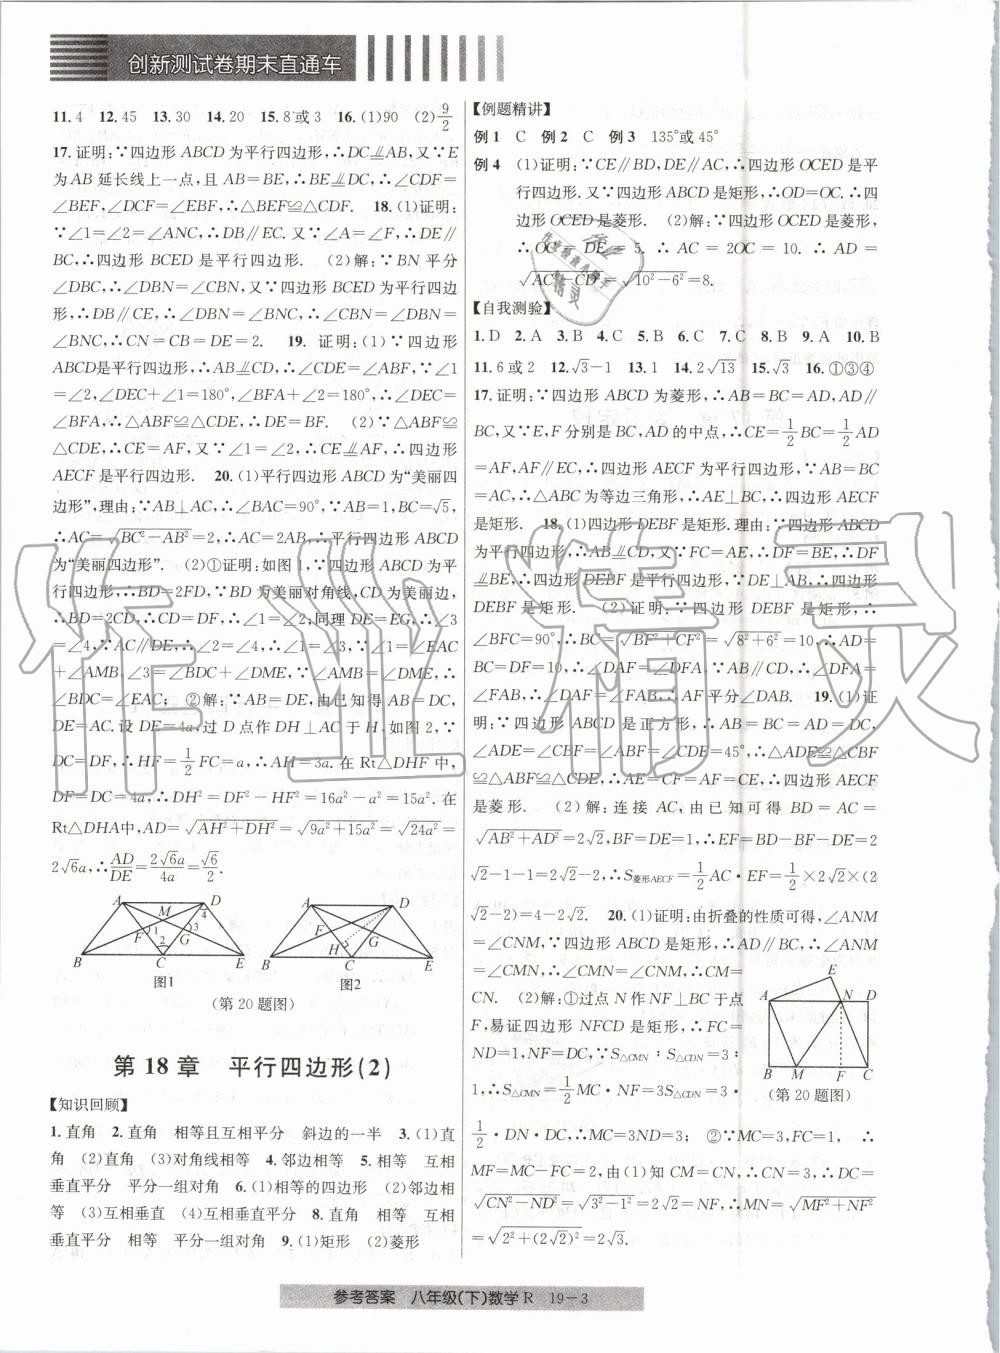 创新测试卷期末直通车
11.4 12.45 13.30 14.20 15.8或3 16.(1)90 (2)9/2
17.证明:∵四边形ABCD为平行四边形,∴DC⫽AB,又∵E
为AB延长线上一点,且AB=BE,∴BE⫽DC,∴∠CDF=
∠BEF,∠DCF=∠EBF,∴△BEF≌△CDF. 18.(1)证明:
∵∠1=∠2=∠ANC,∴DB∥EC.又∵∠A=∠F,∴DE∥
BC,∴四边形BCED是平行四边形. (2)解:∵BN平分
∠DBC,∴∠DBN=∠CBN.又∵四边形BCED是平行四边
形,∴DB∥CE,∴∠DBN=∠BNC,∴∠CBN=∠DBN=
∠BNC,∴CN=CB=DE=2. 19.证明:(1)∵四边形
ABCD是平行四边形,∴AB⫽CD,∴∠CDE=∠ABF,∵∠1=
∠2,∠DEC+∠1=180°,∠BFA+∠2=180°,∴∠DEC=
∠BFA,∴△ABF≌△CDE,∴DE=BF. (2)∵△ABF≌
△CDE,∴CE=AF,又∵∠1=∠2,∴CE∥AF,∴四边形
AECF是平行四边形. 20.(1)平行四边形ABCD为“美丽四
边形”,理由:∵AB⊥AC,∴∠BAC=90°,∵AB=1,BC=√5,
∴AC=√(BC²−AB²)=2,∴AC=2AB,∴平行四边形ABCD
为“美丽四边形”. (2)①证明:如图1,∵四边形ABCD为平
行四边形,∴BD=2FD,∵BD为美丽对角线,CD为美丽边,
∴BD=2CD,∴CD=DF,∴∠1=∠2,同理DE=EG,∴∠3
=∠4,∵AC∥DE,∴∠2=∠4,∴∠1=∠3.∵∠EAC
+∠AMB,∠3=∠BDC+∠DME,∵∠AMB=∠DME,∴
∠BDC=∠EAC; ②解:∵AB=DE,由已知得AB=DC,
DE=AC.设DE=4a,过D点作DH⊥AC于H,如图2,∵
DC=DF,∴HF=1/2 FC=a,∴AH=3a.在Rt△DHF中,
DF=DC=4a,∴DH²=DF²−HF²=16a²−a²=15a².在
Rt△DHA中,AD=√(AH²+DH²)=√(9a²+15a²)=√(24a²)=
2√6a,∴AD/DE=2√6a/4a=√6/2.
A D M 4 F 1 3 G 2 B C E
图1
A D F G H B C E
图2
(第20题图)
第18章 平行四边形(2)
【知识回顾】
1.直角 2.直角 相等且互相平分 斜边的一半 3.(1)直
角 (2)直角 (3)对角线相等 4.邻边相等 5.相等 互相
垂直平分 平分一组对角 6.(1)相等的四边形 (2)邻边相
等 (3)互相垂直 (4)互相垂直平分 8.直角 相等 互相
垂直平分 相等 平分一组对角 9.(1)矩形 (2)菱形
【例题精讲】
例1 C 例2 C 例3 135°或45°
例4 (1)证明:∵CE∥BD,DE∥AC,∴四边形OCED是平
行四边形.又∵四边形ABCD是矩形,∴OD=OC.∴四
边形OCED是菱形. (2)解:∵四边形OCED是菱形,
∴OC=DE=5.∴AC=2OC=10.∴AD=
√(AC²−CD²)=√(10²−6²)=8.
【自我测验】
1.D 2.A 3.B 4.C 5.B 6.C 7.C 8.B 9.A 10.B
11.6或2 12.√3−1 13.1 14.2√13 15.√3 16.①③④
17.证明:∵四边形ABCD为菱形,∴AB=BC=AD,AD∥
BC,又∵E,F分别是BC,AD的中点,∴CE=1/2 BC=1/2 AD
=AF,AF∥EC,∴四边形AECF为平行四边形,∵AB=BC
=AC,∴△ABC为等边三角形,∴AE⊥BC,∴四边形AECF
是矩形. 18.(1)四边形DEBF是矩形.理由:∵四边形ABCD
为平行四边形,∴AB⫽CD.又∵FC=AE,∴DF=BE,∴DF
⫽BE,∴四边形DEBF是平行四边形,∵DE⊥AB,∴四边形
DEBF是矩形. (2)证明:∵四边形DEBF是矩形,∴
∠BFC=90°,∴BC=√(BF²+CF²)=√(8²+6²)=10,∴AD=
BC=DF=10,∴∠DAF=∠DFA.∵AB∥CD,∴∠DFA=
∠FAB,∴∠DAF=∠FAB,∴AF平分∠DAB. 19.(1)证
明:∵四边形ABCD是正方形,∴AB=BC=AD=DC,
∠ADE=∠CBF=∠ABF=∠CDE=45°,∴△ADE≌△CBF
≌△ABF≌△CDE,∴AE=CE=AF=CF,∴四边形AECF
是菱形. (2)解:连接AC,由已知可得BD=AC=
√(AB²+AD²)=2√2,BF=DE=1,∴EF=BD−BF−DE=2
√2−1−1=2√2−2,∴S菱形AECF=1/2 AC·EF=1/2×2√2×(2
√2−2)=4−2√2. 20.(1)证明:由折叠的性质可得,∠ANM
=∠CNM,∵四边形ABCD是矩形,∴AD∥BC,∴∠ANM
=∠CMN,∴∠CMN=∠CNM,∴CM=
CN. (2)解:①过点N作NF⊥BC于点
F,易证四边形NFCD是矩形,∴FC=
ND=1,NF=DC=∵S△CMN∶S△CDN=3∶
1,∴S△CMN=1/2 MC·NF=3S△CDN=3×
1/2·DN·DC,∴MC=3ND=3; ②∵MC=3,FC=1,∴
MF=MC−FC=2,由(1)知CM=CN,∴CN=3,∴DC=
√(CN²−ND²)=√(3²−1²)=2√2=NF,∴MN=√(MF²+NF²)
=√(2²+(2√2)²)=2√3.
E A N D B M F C
(第20题图)
参考答案 八年级(下)数学R 19−3
作业精灵
精灵